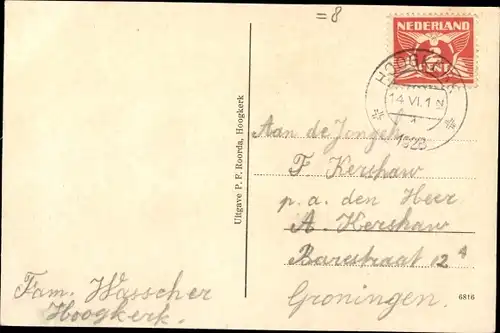 = 8
NEDERLAND
2
CENT
HOOGKERK
14 VI.1
1928
Aan de Jongeh.
F Kershaw
p.a. den Heer
A. Kershaw
12 a
Groningen.
Uitgave P. F. Roorda, Hoogkerk
Fam. Wasscher
Hoogkerk.
6816